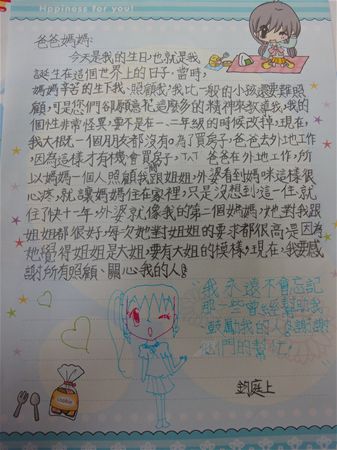 Hppiness for you!
爸爸媽媽:
今天是我的生日,也就是我
誕生在這個世界上的日子,當時,
媽媽辛苦的生下我、照顧我,我比一般的小孩還要難照
顧,可是您們卻願意花這麼多的精神來教導我,我的
個性非常怪異,要不是在一、二年級的時候改掉,現在,
我大概一個朋友都沒有。為了買房子,爸爸去外地工作,
因為這樣才有機會買房子,TAT 爸爸在外地工作,所
以媽媽一個人照顧我跟姐姐,外婆看到媽咪這樣很
心疼,就讓媽媽住在家裡,只是沒想到這一住,就
住了快十一年,外婆就像我的第二個媽媽,她對我跟
姐姐都很好,每次她對姐姐的要求都很高,是因為
她覺得姐姐是大姐,要有大姐的模樣,現在,我要感
謝所有照顧、關心我的人。
我永遠不會忘記
那一些曾經幫助我
鼓勵我的人,謝謝
他們的幫忙。
鈞庭上
cookie